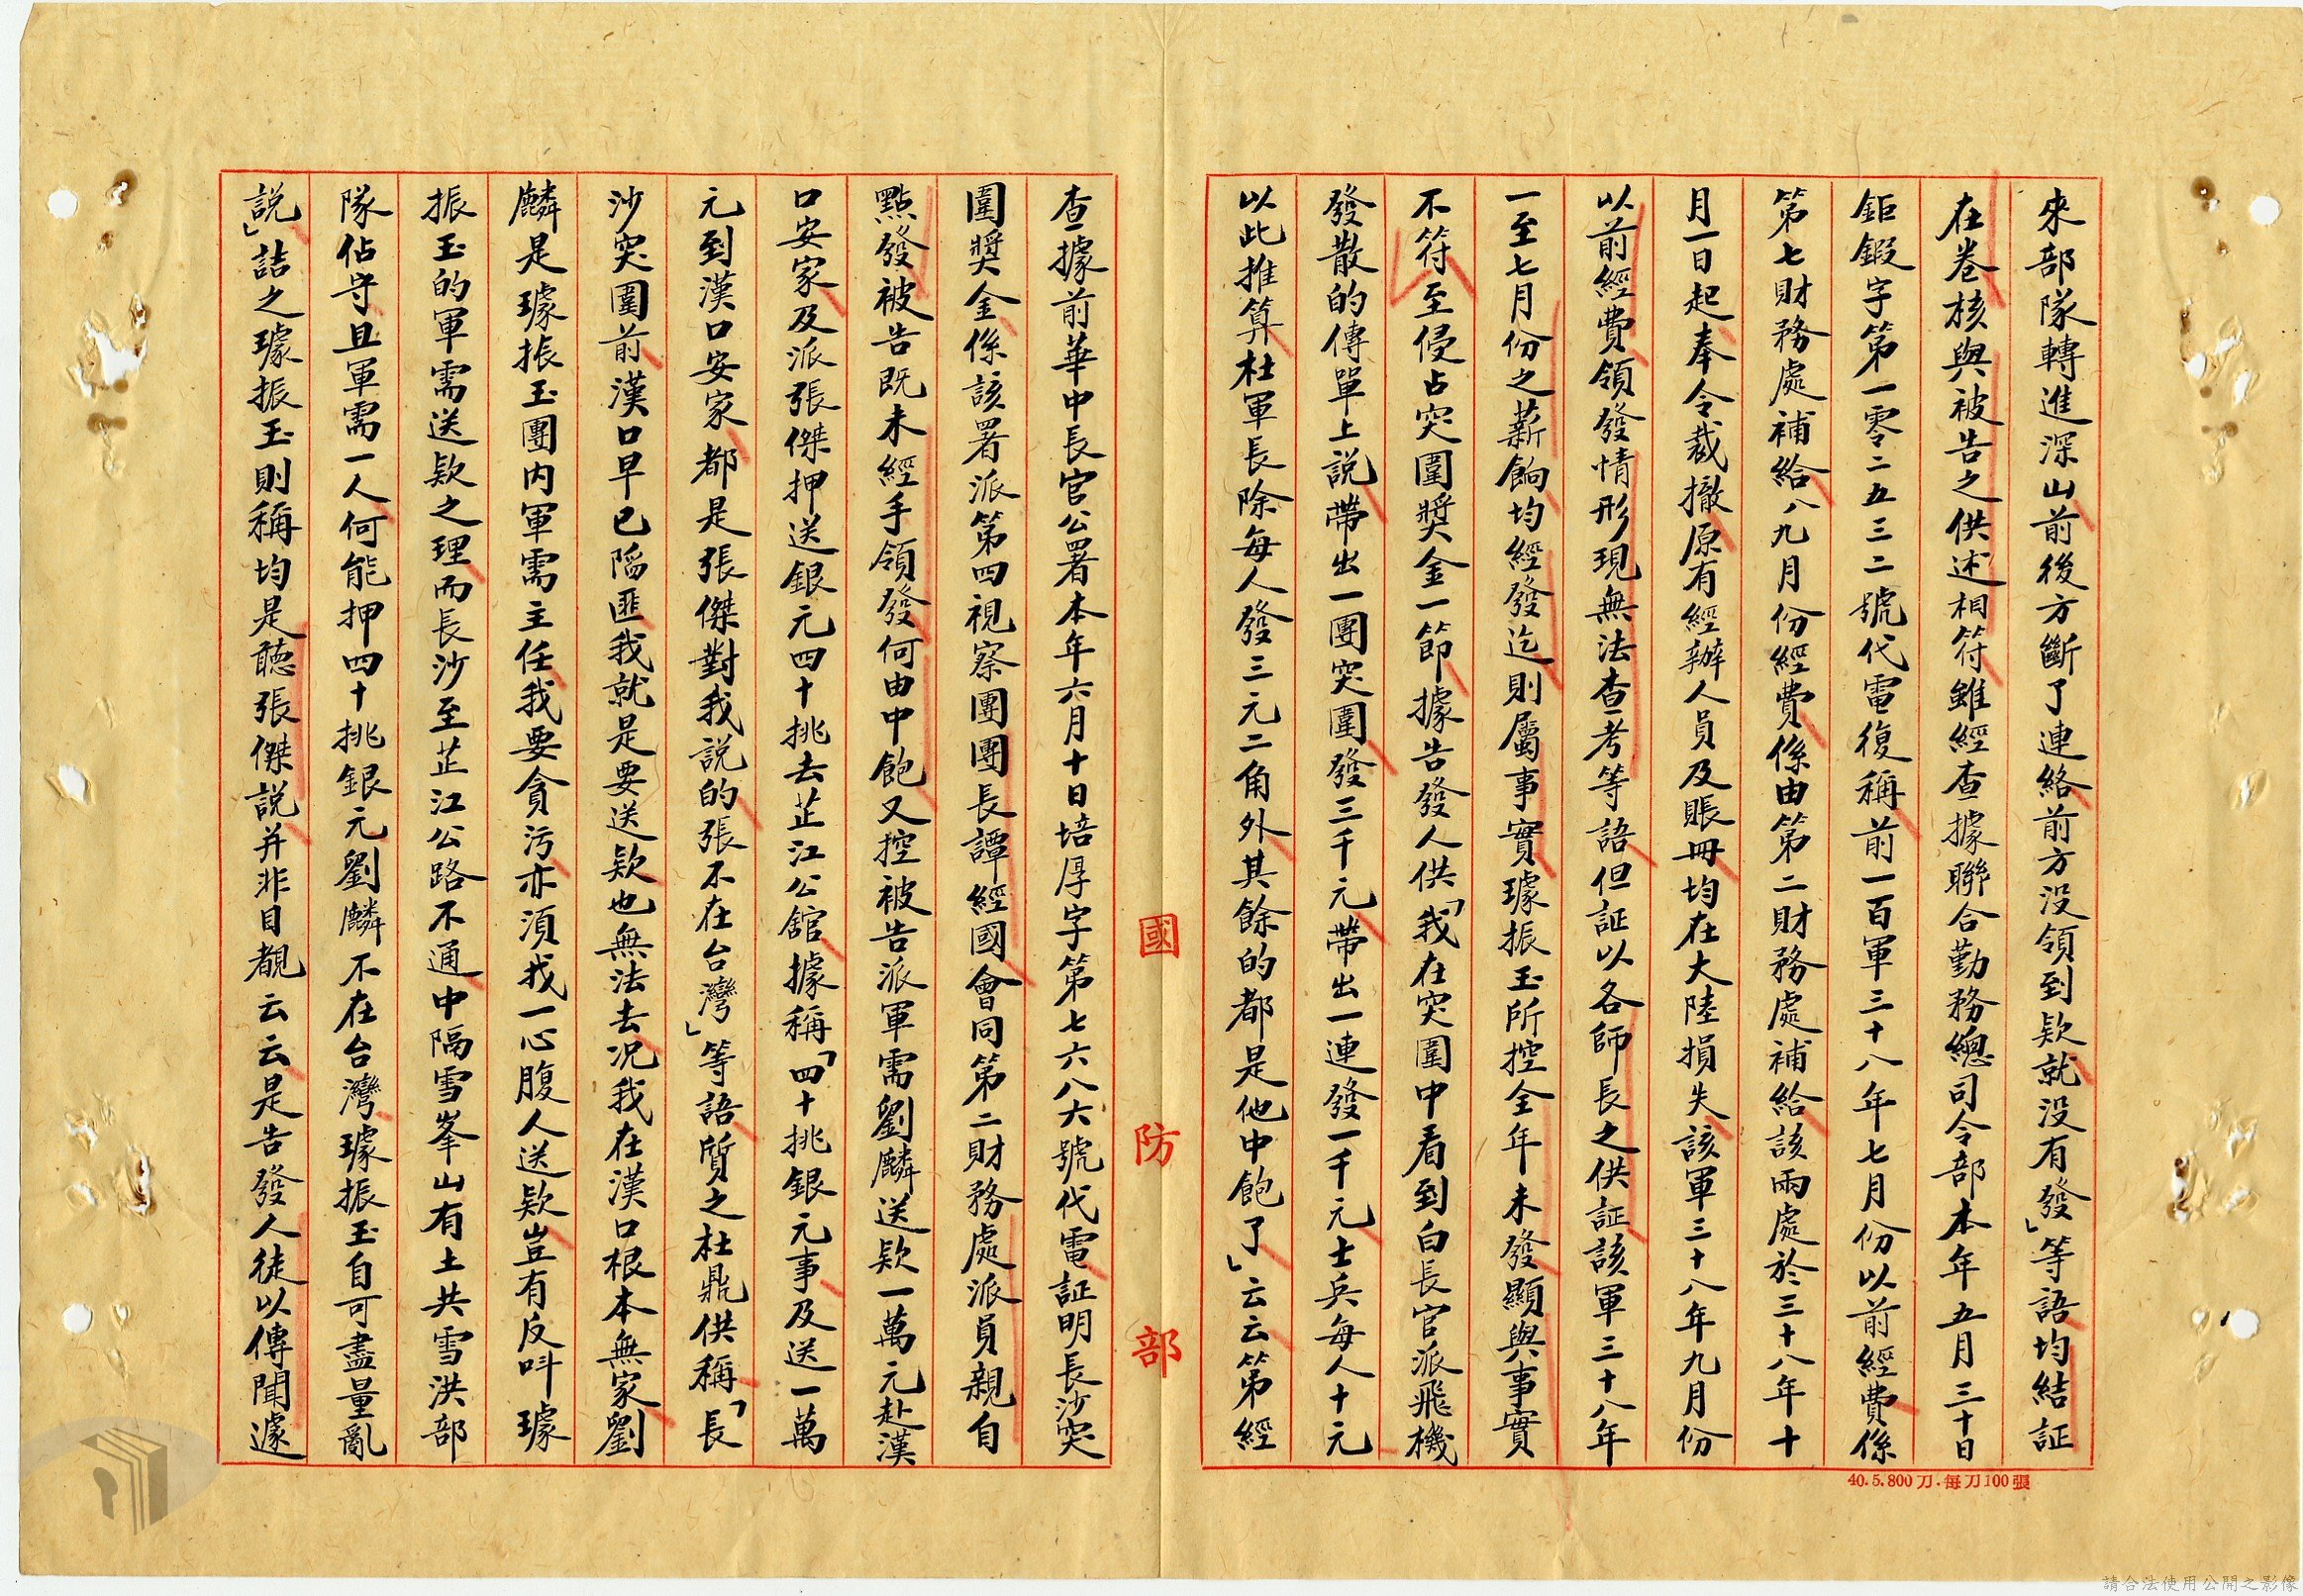 來部隊轉進深山前後方斷了連絡前方没領到欵就没有發」等語均結証
在卷核與被告之供述相符雖經查據聯合勤務總司令部本年五月三十日
鉅鍜字第一零二五三二號代電復稱前一百軍三十八年七月份以前經費係
第七財務處補給八九月份經費係由第二財務處補給該兩處於三十八年十
月一日起奉令裁撤原有經辦人員及賬冊均在大陸損失該軍三十八年九月份
以前經費領發情形現無法查考等語但証以各師長之供証該軍三十八年
一至七月份之薪餉均經發迄則屬事實璩振玉所控全年未發顯與事實
不符至侵占突圍獎金一節據告發人供「我在突圍中看到白長官派飛機
發散的傳單上説帶出一團突圍發三千元帶出一連發一千元士兵每人十元
以此推算杜軍長除每人發三元二角外其餘的都是他中飽了」云云第經
國防部
查據前華中長官公署本年六月十日培厚字第七六八六號代電証明長沙突
圍獎金係該署派第四視察團團長譚經國會同第二財務處派員親自
點發被告既未經手領發何由中飽又控被告派軍需劉麟送欵一萬元赴漢
口安家及派張傑押送銀元四十挑去芷江公舘據稱「四十挑銀元事及送一萬
元到漢口安家都是張傑對我説的張不在台灣」等語質之杜鼎供稱「長
沙突圍前漢口早已陷匪我就是要送欵也無法去况我在漢口根本無家劉
麟是璩振玉團内軍需主任我要貪污亦須我一心腹人送欵豈有反叫璩
振玉的軍需送欵之理而長沙至芷江公路不通中隔雪峯山有土共雪洪部
隊佔守且軍需一人何能押四十挑銀元劉麟不在台灣璩振玉自可盡量亂
説」詰之璩振玉則稱均是聽張傑説并非目覩云云是告發人徒以傳聞遽
40.5.800刀.每刀100張
請合法使用公開之影像